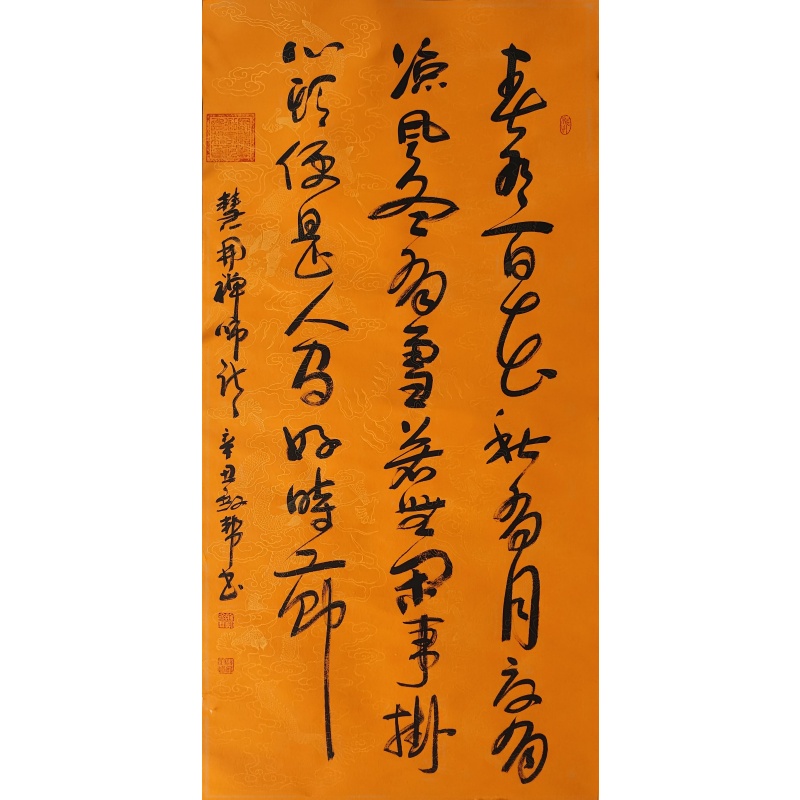 春有百花秋有月夏有
凉风冬有雪若无闲事掛
心头便是人间好时节
慧开禅师诗 辛丑 敬帮书